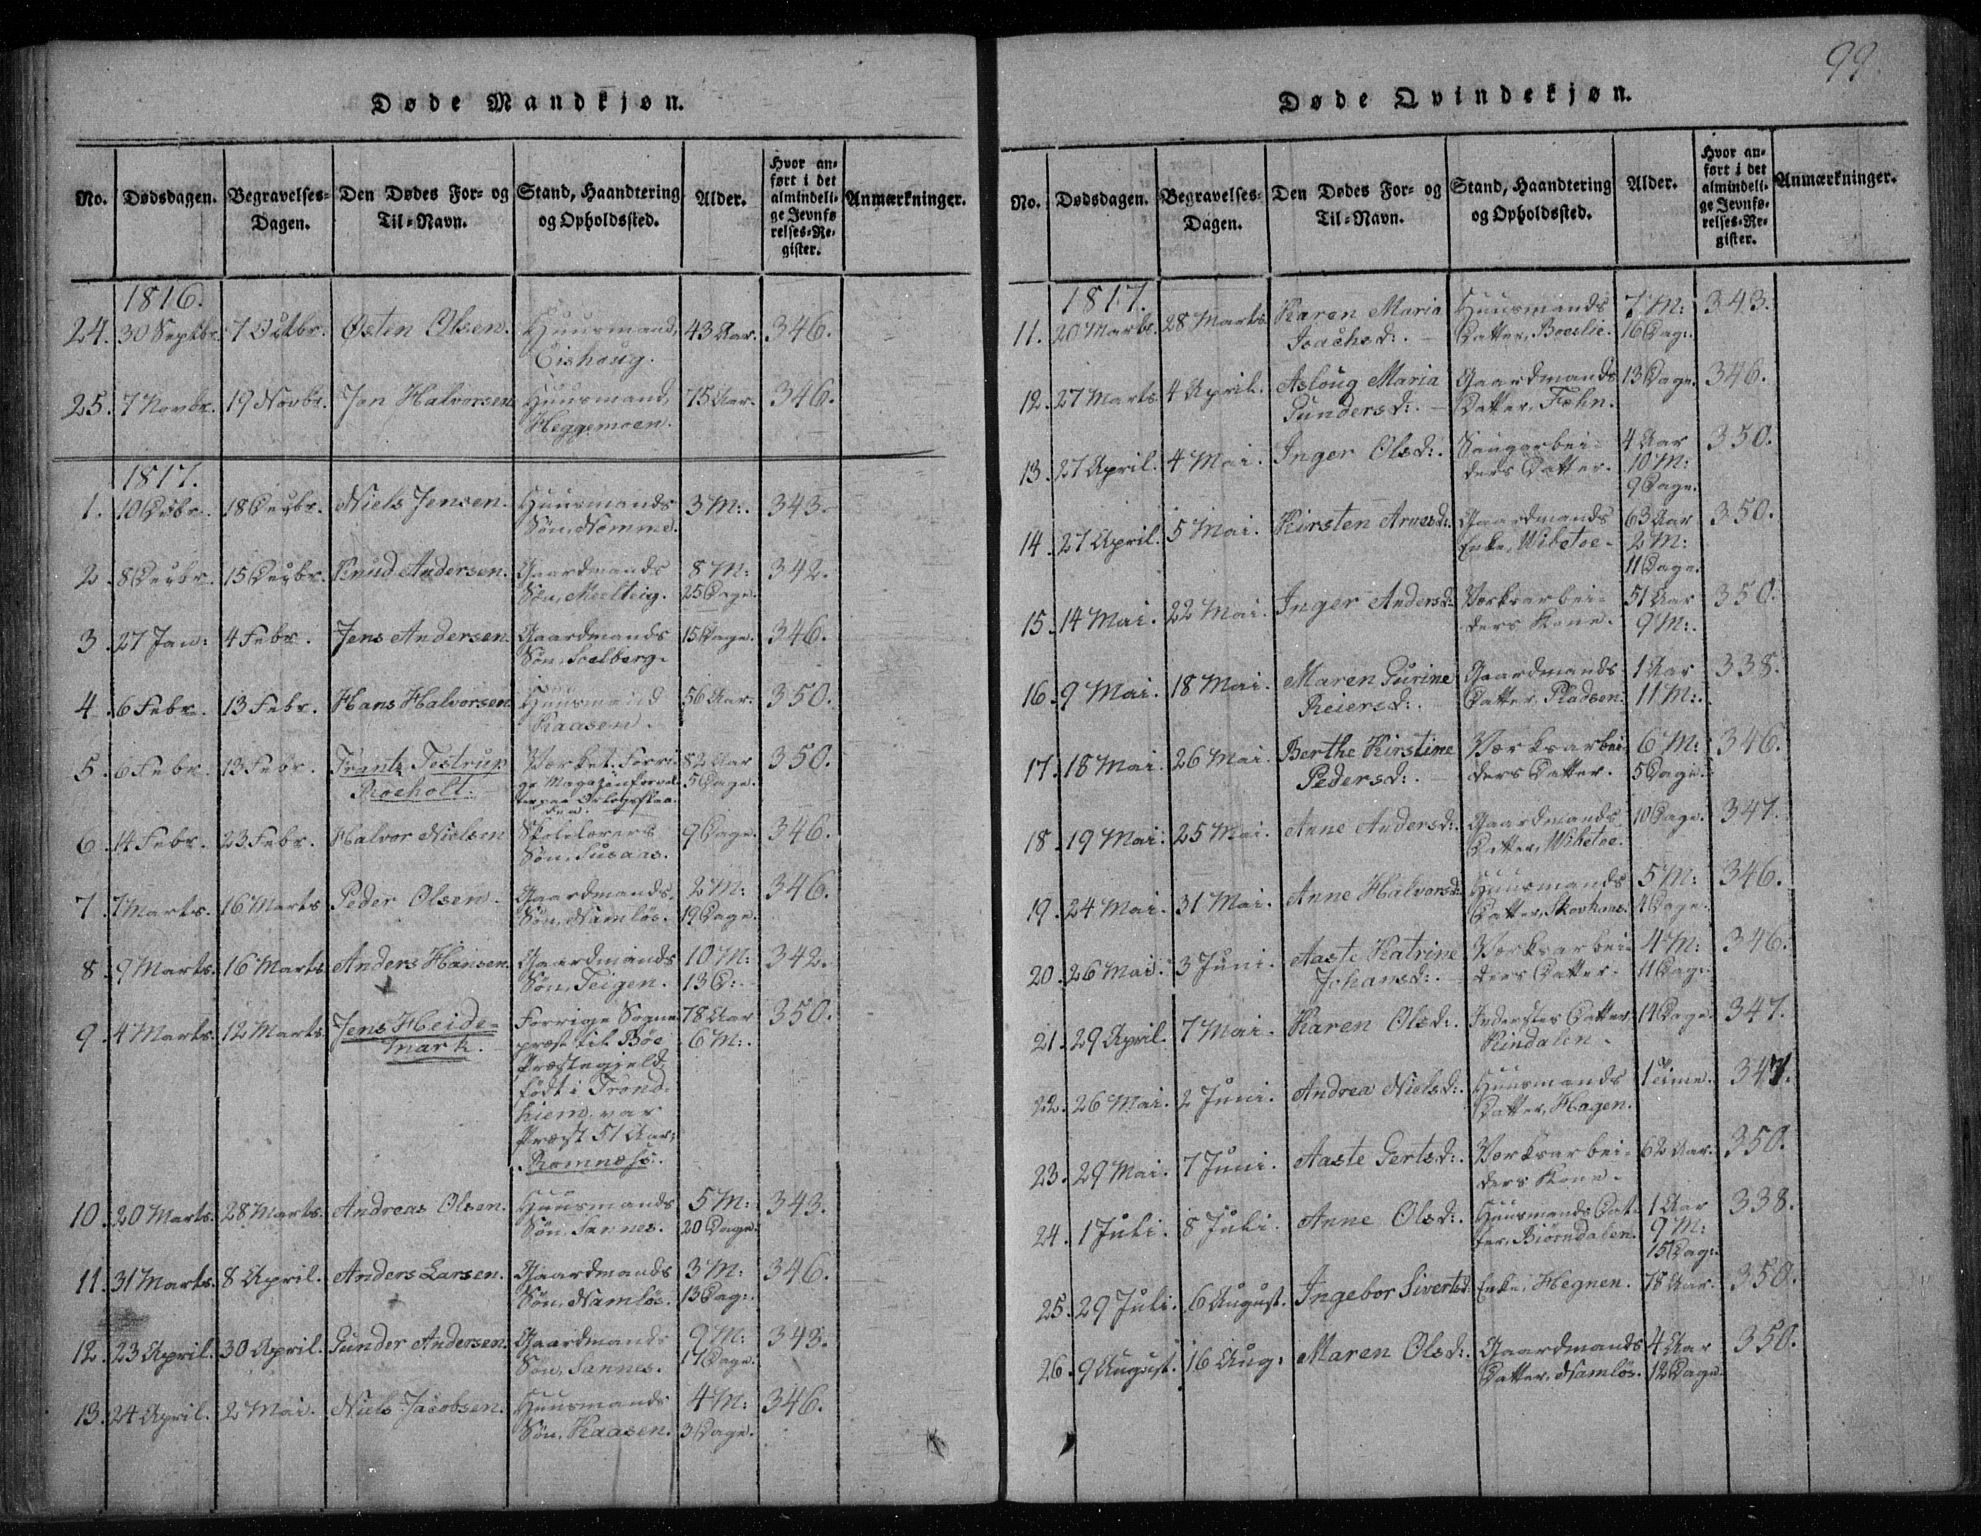 99.
Døde Mandkjøn.
No. Dødsdagen. Begravelses-Dagen. Den Dødes For- og Til-Navn. Stand, Haandtering og Opholdssted. Alder. Hvor anført i det almindelige Jevnførelses-Register. Anmærkninger.
1816.
24. 30 Septbr. 7 Octbr. Østen Olsen. Huusmand, 43 Aar. 346.
Eishoug.
25. 7 Novbr. 19 Novbr. Jon Halvorsen Huusmand, 75 Aar. 346.
Heggemoen.
1817.
1. 18 Decbr. Niels Jensen. Huusmands 3 M: 343.
Søn, Nomme.
2. 8 Decbr. 15 Decbr. Knud Andersen. Gaardmands 8 M: 342.
Søn, 25 Dage.
3. 27 Jan: 4 Febr. Jens Andersen. Gaardmands 15 Dage. 346.
Søn,
4. 6 Febr. 13 Febr. Hans Halvorsen Huusmand 56 Aar. 350.
Kaasen.
5. 6 Febr. 13 Febr. Frantz Testrup Værket Forri- 82 Aar 350.
Roeholt. ge Magazinforval- 5 Dage.
6. 14 Febr. 23 Febr. Halvor Nielsen Skolelærers 9 Dage. 346.
Søn, Susaas.
7. 7 Marts. 16 Marts Peder Olsen. Gaardmands 2 M: 346.
Søn, Namløs. 19 Dage.
8. 9 Marts. 16 Marts Anders Hansen. Gaardmands 10 M: 342.
Søn, Teigen. 13 D:
9. 4 Marts. 12 Marts Jens Heide- Forrige Sogne- 78 Aar 350.
mark. præst til Bøe 6 M:.
Præstegield,
født i Trond-
hiem, var
Præst 51 Aar;
Romnæss.
10. 20 Marts. 28 Marts. Andreas Olsen. Huusmands 5 M: 343.
Søn, Sannes. 20 Dage.
11. 31 Marts. 8 April. Anders Larsen. Gaardmands 3 M: 346.
Søn, Namløs. 13 Dag:.
12. 23 April. 30 April. Gunder Andersen. Gaardmands 9 M: 343.
Søn, Sannes. 17 Dage.
13. 24 April. 2 Mai. Niels Jacobsen. Huusmands 4 M: 346.
Søn, Kaasen. 3 Dage.
Døde Qvindekjøn.
No. Dødsdagen. Begravelses-Dagen. Den Dødes For- og Til-Navn. Stand, Haandtering og Opholdssted. Alder. Hvor anført i det almindelige Jevnførelses-Register. Anmærkninger.
1817.
11. 20 Marts. 28 Marts. Karen Maria Huusmands 7 M: 343.
Isachsd:. Datter, Boeslie. 16 Dag:
12. 27 Marts. 4 April. Asloug Maria Gaardmands 13 Dage. 346.
Gundersd:. Datter, Fehn.
13. 27 April. 4 Mai. Inger Olsd:. Saugarbei- 4 Aar 350.
ders Datter. 10 M:
9 Dage.
14. 27 April. 5 Mai. Kirsten Arnesd:. Gaardmands 63 Aar 350.
Enke, Wibetoe. 2 M:
11 Dage.
15. 14 Mai. 22 Mai. Inger Andersd:. Værksarbei- 51 Aar 350.
ders Kone. 9 M:.
16. 9 Mai. 18 Mai. Maren Gurine Gaardmands 1 Aar 338.
Reiersd:. Datter, Pladsen. 11 M:.
17. 18 Mai. 26 Mai. Berthe Kirstine Værksarbei- 6 M: 346.
Pedersd:. ders Datter. 5 Dage.
18. 19 Mai. 25 Mai. Anne Andersd:. Gaardmands 10 Dage. 347.
Datter, Wibetoe.
19. 24 Mai. 31 Mai. Anne Halvorsd: Huusmands 5 M: 346.
Datter, 4 Dage.
20. 26 Mai. 3 Juni. Aaste Katrine Værksarbei- 4 M: 346.
Johansd:. ders Datter. 11 Dag:
21. 29 April. 7 Mai. Karen Olsd:. Inderstes Datter 14 Dage. 347.
Rindalen.
22. 26 Mai. 2 Juni. Andrea Nielsd:. Huusmands 1 Time. 347.
Datter, Hagen.
23. 29 Mai. 7 Juni. Aaste Gertsd:. Værksarbei- 62 Aar. 350.
ders Kone.
24. 1 Juli. 8 Juli. Anne Olsd:. Huusmands Dat- 1 Aar 338.
ter, Biørndalen. 9 M:
15 Dag:.
25. 29 Juli. 6 August. Ingebor Sivertsd Enke, Hegnen. 78 Aar. 350.
26. 9 August. 16 Aug: Maren Olsd:. Gaardmands 4 Aar 350.
Datter, Namløs. 12 Dage.